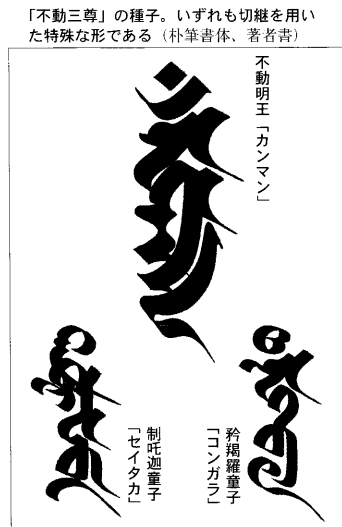 「不動三尊」の種子。いずれも切継を用い
た特殊な形である（朴筆書体、著者書）
不動明王「カンマン」
矜羯羅童子
「コンガラ」
制吒迦童子
「セイタカ」